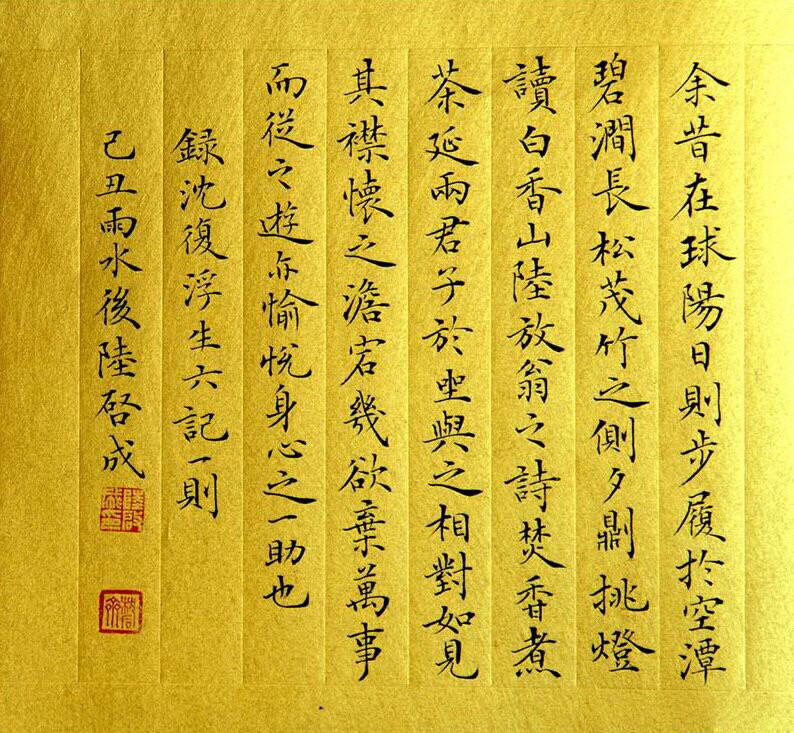 余昔在球陽日則步履於空潭
碧澗長松茂竹之側夕𠞰挑燈
讀白香山陸放翁之詩焚香煮
茶延兩君子於坐與之相對如見
其襟懷之澹宕幾欲棄萬事
而從之遊亦愉悅身心之一助也
錄沈復浮生六記一則
己丑雨水後陸啓成